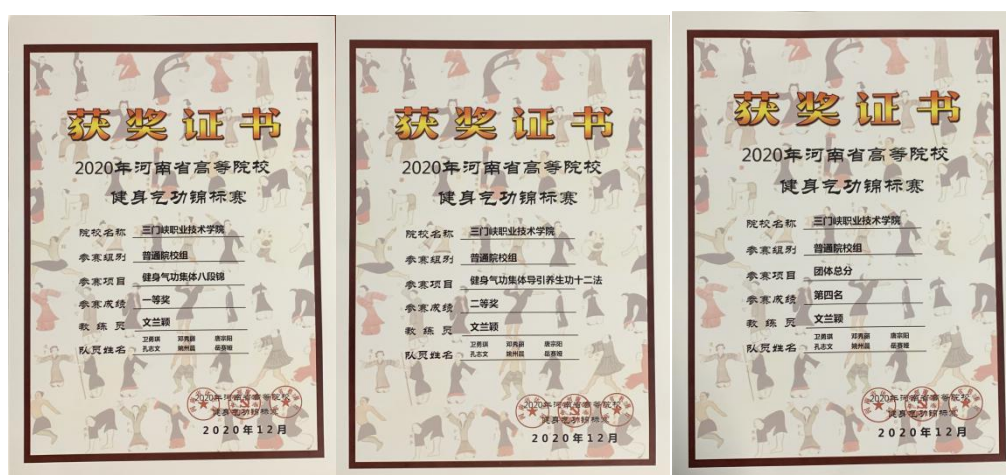 获奖证书
2020年河南省高等院校
健身气功锦标赛
院校名称 三门峡职业技术学院
参赛组别 普通院校组
参赛项目 健身气功集体八段锦
参赛成绩 一等奖
教练员 文兰颖
队员姓名 卫勇琪 邓秀丽 唐宗阳
孔志文 姚州晨
2020年河南省高等院校
健身气功锦标赛
2020年12月
获奖证书
2020年河南省高等院校
健身气功锦标赛
院校名称 三门峡职业技术学院
参赛组别 普通院校组
参赛项目 健身气功集体导引养生功十二法
参赛成绩 二等奖
教练员 文兰颖
队员姓名 卫勇琪 邓秀丽 唐宗阳
孔志文 姚州晨
2020年河南省高等院校
健身气功锦标赛
2020年12月
获奖证书
2020年河南省高等院校
健身气功锦标赛
院校名称 三门峡职业技术学院
参赛组别 普通院校组
参赛项目 团体总分
参赛成绩 第四名
教练员 文兰颖
队员姓名 卫勇琪 邓秀丽 唐宗阳
孔志文 姚州晨
2020年河南省高等院校
健身气功锦标赛
2020年12月